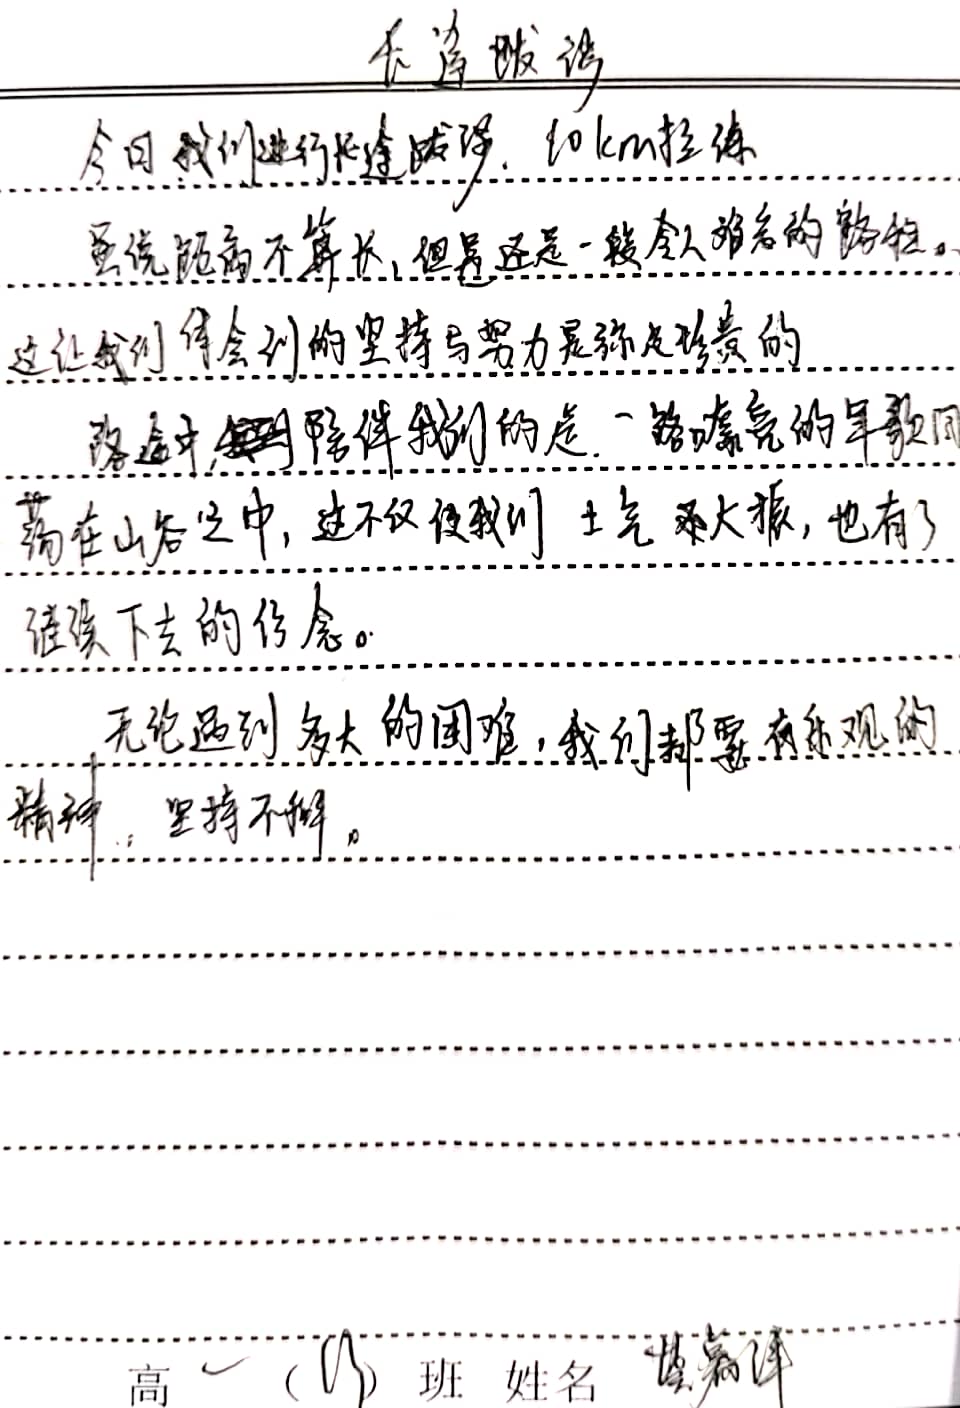 长途跋涉
今日我们进行长途跋涉. 10km拉练
虽说距离不算长,但是还是一段令人难忘的路程。
这让我们体会到的坚持与努力是弥足珍贵的
路途中,陪伴我们的是.一路嘹亮的军歌回
荡在山谷之中,这不仅使我们士气大振,也有了
继续下去的信念。
无论遇到多大的困难,我们都要有乐观的
精神.坚持不懈。
高一( )班 姓名